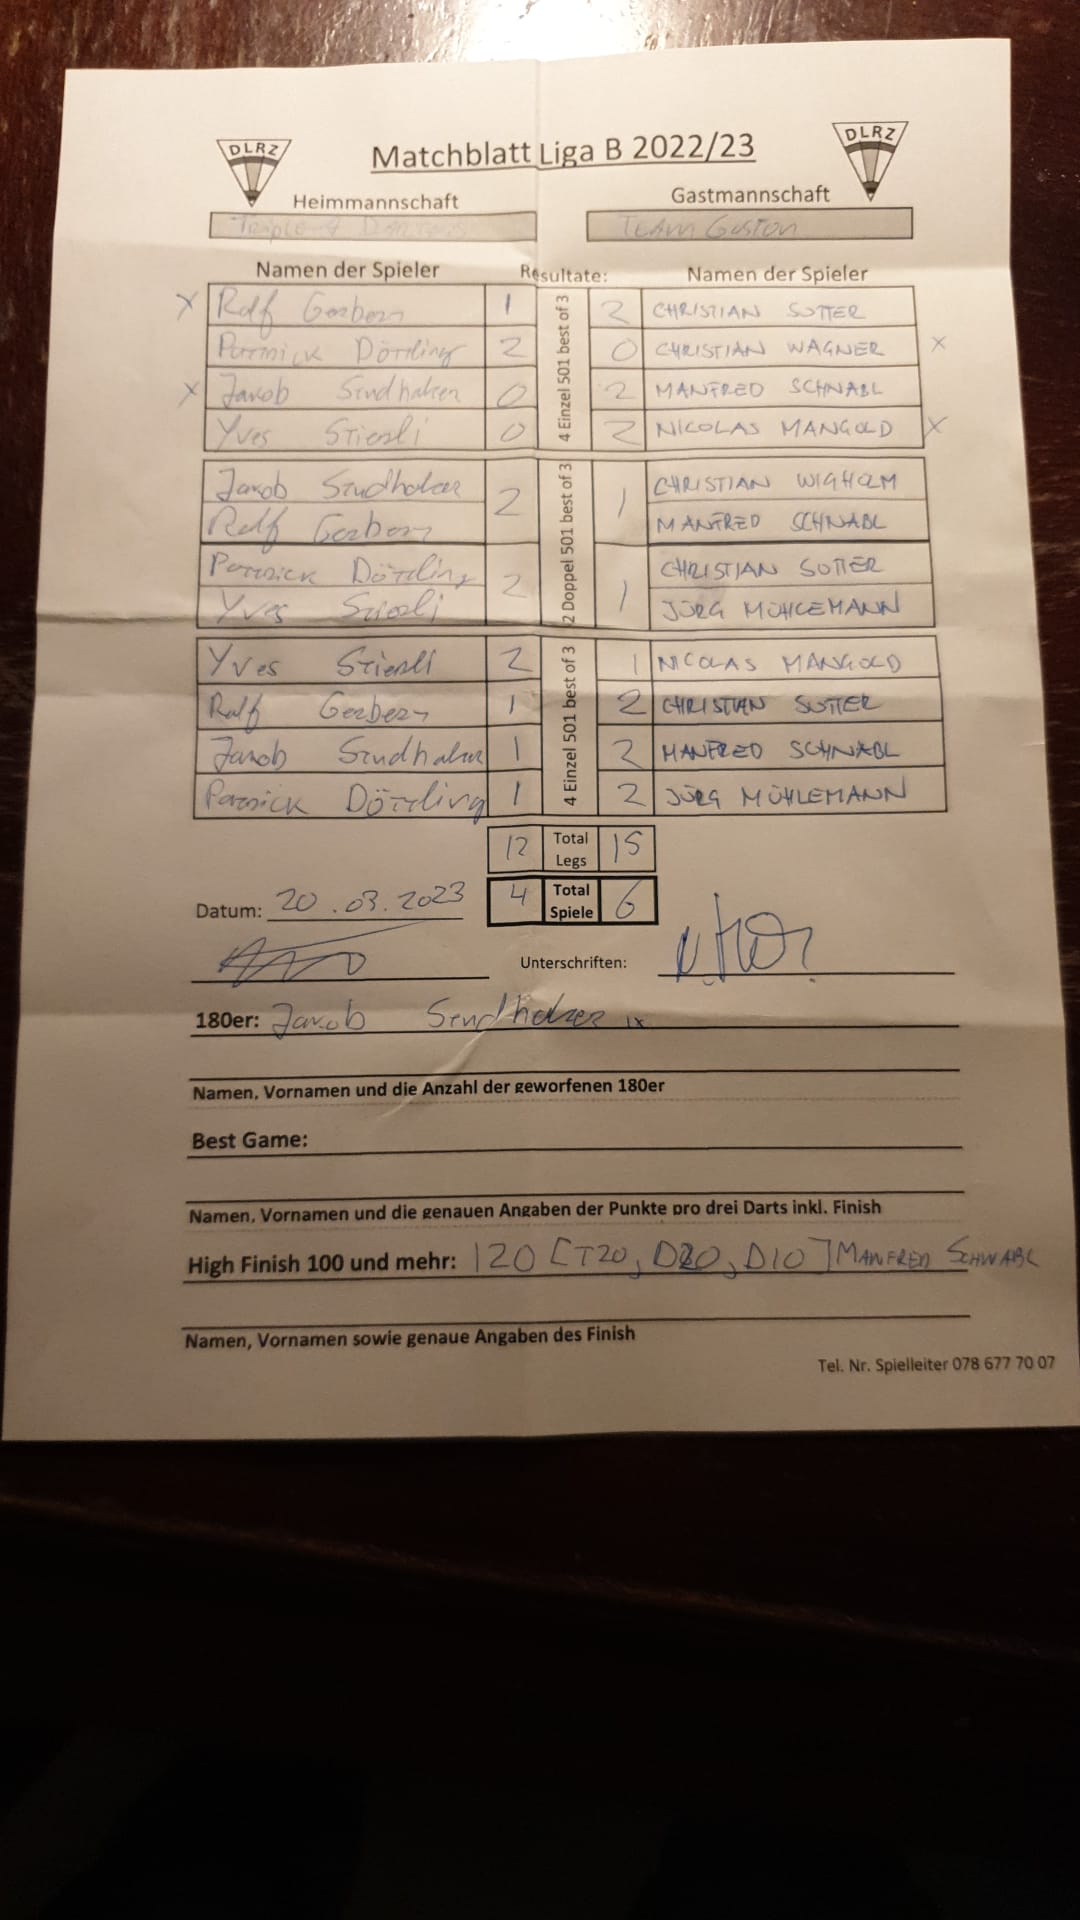 DLRZ Matchblatt Liga B 2022/23 DLRZ
Heimmannschaft Gastmannschaft
Triple A Darters TEAM GUSTON
Namen der Spieler Resultate: Namen der Spieler
X Ralf Gerbern 1 2 CHRISTIAN SUTTER
Patrick Döttling 2 0 CHRISTIAN WAGNER X
X Jakob 0 2 MANFRED SCHNABL
Yves 0 2 NICOLAS MANGOLD X
4 Einzel 501 best of 3
Jakob 2 1 CHRISTIAN WIGHOLM
Ralf Gerbern MANFRED SCHNABL
Patrick Döttling 2 1 CHRISTIAN SUTTER
Yves JÜRG MÜHLEMANN
2 Doppel 501 best of 3
Yves 2 1 NICOLAS MANGOLD
Ralf Gerbern 1 2 CHRISTIAN SUTTER
Jakob 1 2 MANFRED SCHNABL
Patrick Döttling 1 2 JÜRG MÜHLEMANN
4 Einzel 501 best of 3
12 Total Legs 15
Datum: 20.03.2023 4 Total Spiele 6
Unterschriften:
180er: Jakob 1x
Namen, Vornamen und die Anzahl der geworfenen 180er
Best Game:
Namen, Vornamen und die genauen Angaben der Punkte pro drei Darts inkl. Finish
High Finish 100 und mehr: 120 [T20, D20, D10] MANFRED SCHNABL
Namen, Vornamen sowie genaue Angaben des Finish
Tel. Nr. Spielleiter 078 677 70 07